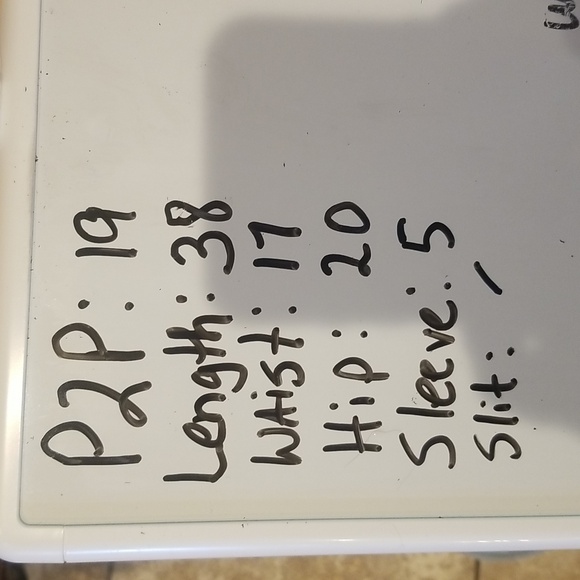 P2P: 19
Length: 38
WAiST: 17
Hip: 20
Sleeve: 5
Slit: /